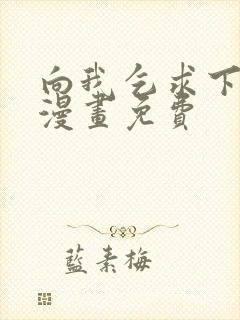 向我乞求下
漫畫免費
藍素梅